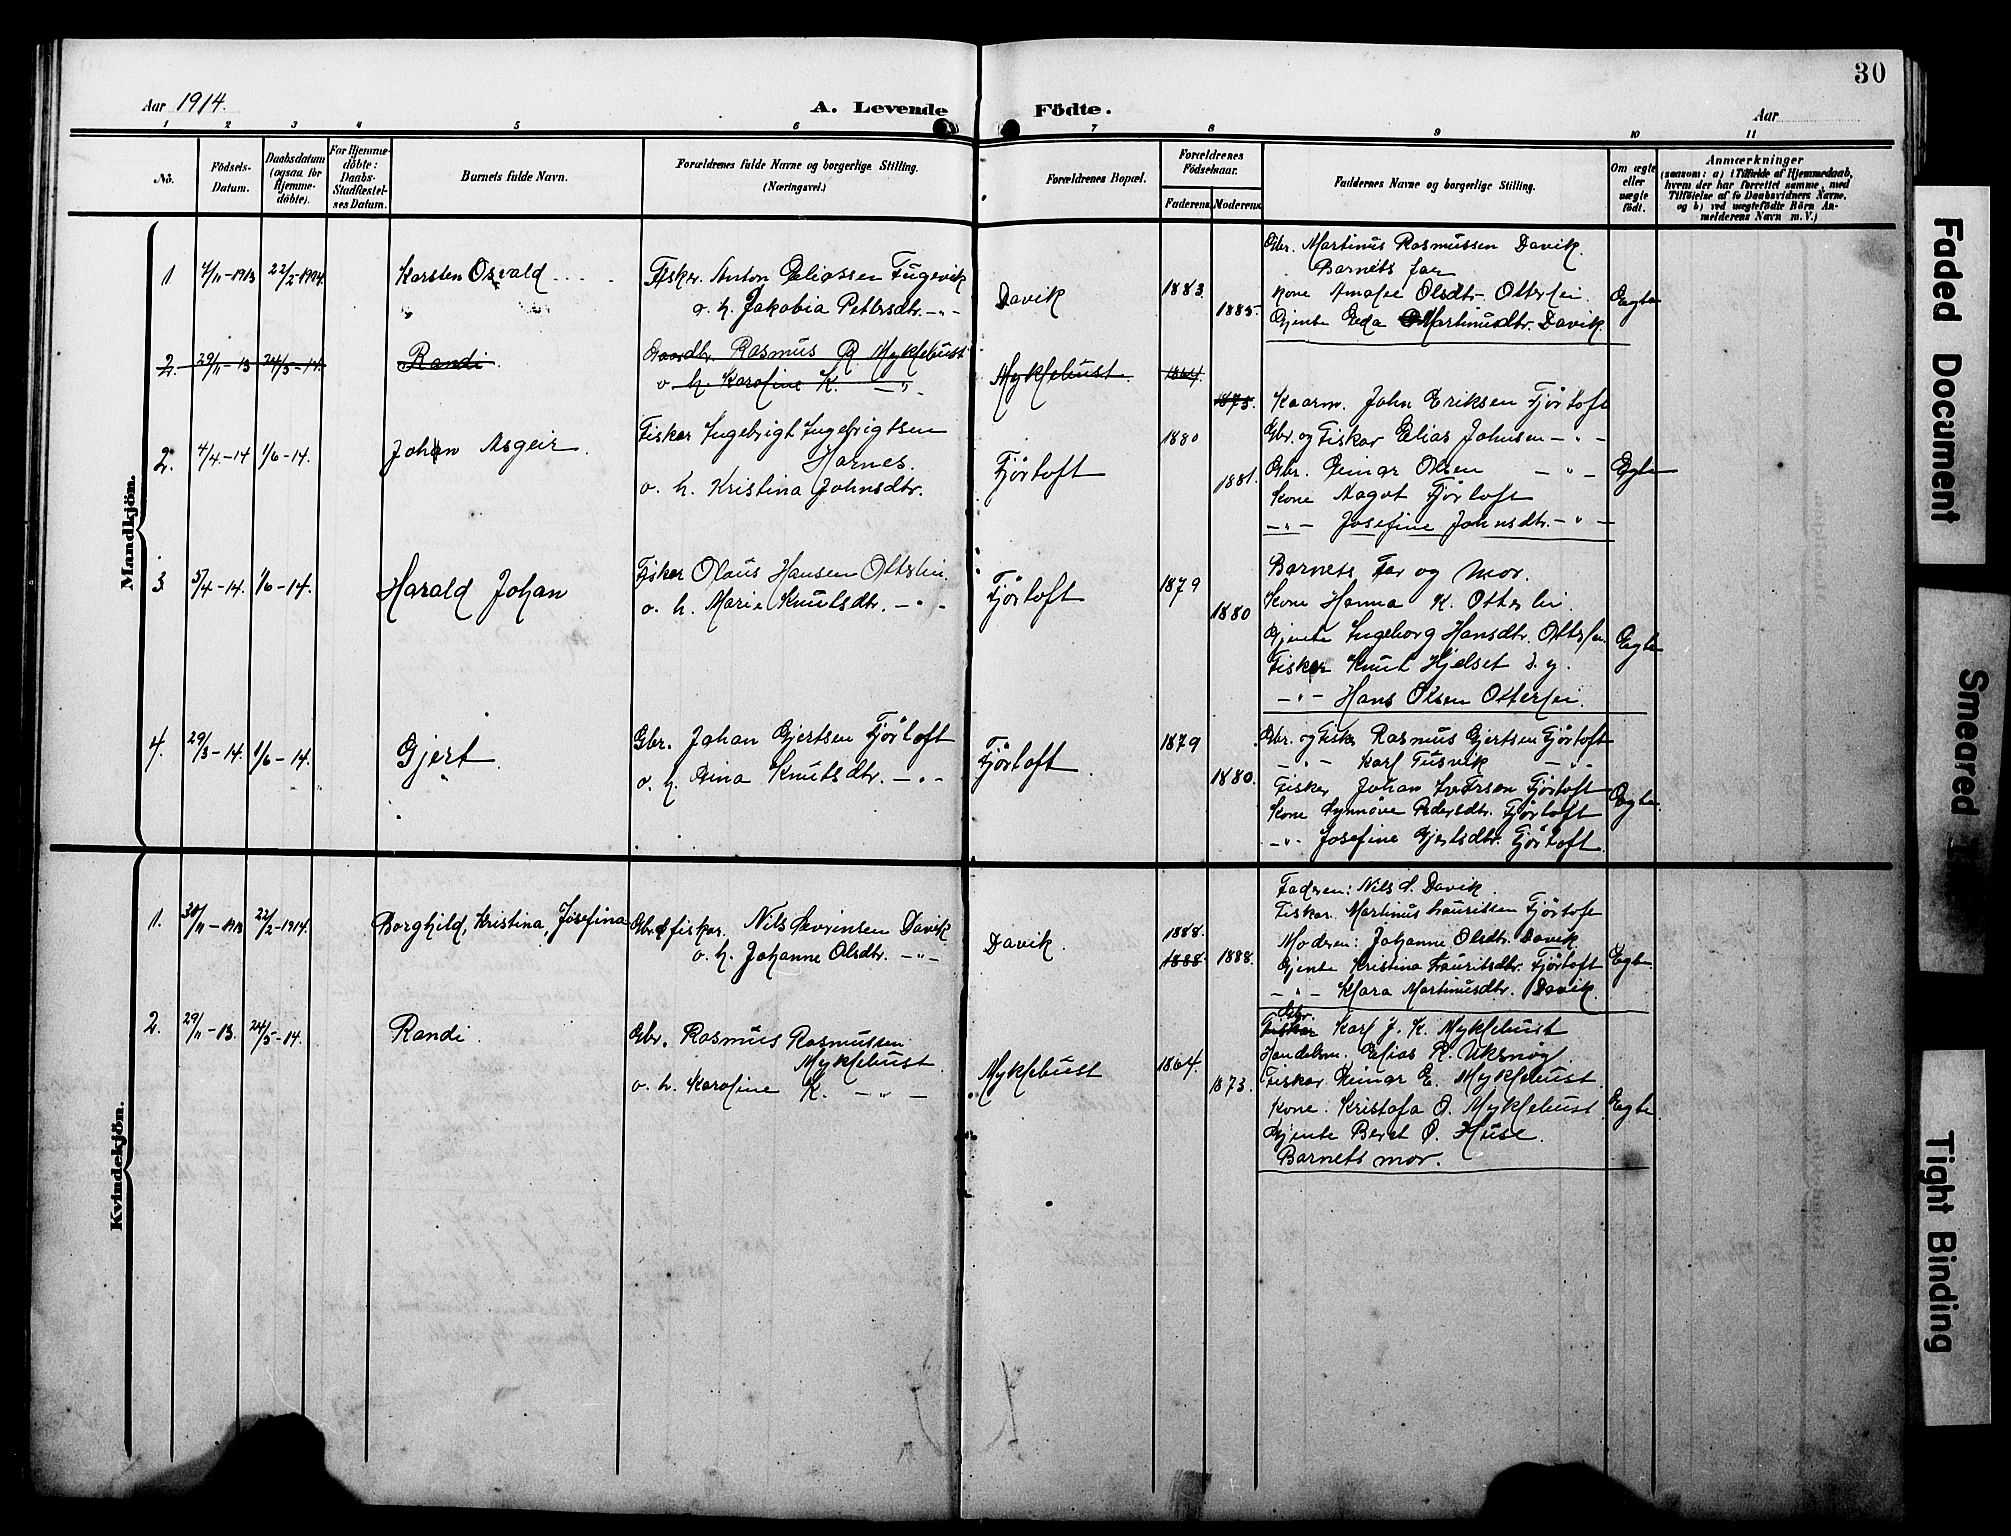 30
Aar 1914.
A. Levende Födte.
Aar
1 2 3 4 5 6 7 8 9 10 11
No.
Födsels-Datum.
Daabsdatum (ogsaa for Hjemme-döbte).
For Hjemme-döbte: Daabs-Stadfæstel-ses Datum.
Barnets fulde Navn.
Forældrenes fulde Navne og borgerlige Stilling.
(Næringsvei.)
Forældrenes Bopæl.
Forældrenes Födselsaar.
Faderens Moderens
Faddernes Navne og borgerlige Stilling.
Om ægte eller uægte födt.
Anmærkninger
(saasom: a) i Tilfælde af Hjemmedaab,
hvem der har forrettet samme, med
Tilföielse af to Daabsvidners Navne,
og b) ved uægtefödte Börn An-
melderens Navn m. V.)
Mandkjön.
1 4/11-1913 22/2-1914 Karsten Osvald
Fisker Anton Eliassen Fugevik
o. h. Jakobia Pettersdtr. -"-
Davik 1883 1885.
Gbr. Martinus Rasmussen Davik
Barnets far
Kone Amalie Olsdtr. Otterlei
Gjente Martinusdtr. Davik
Egte
2. 29/11-13 24/5-14. Randi
Gaardbr. Rasmus R. Myklebust
o. h. Karoline K. -"-
Myklebust. 1864 1873.
2. 4/4-14 1/6-14. Johan Asgeir.
Fisker Ingebrigt Ingebrigtsen
Harnes.
o. h. Kristina Johnsdtr.
Fjørtoft 1880 1881.
Kaarm. John Eriksen Fjørtoft
Gbr. og Fisker Elias Johnsen -"-
Gbr. Eimar Olsen -"-
Kone Magot Fjørtoft
-"- Josefine Johnsdtr. -"-
Egte
3. 5/4-14. 1/6-14. Harald Johan
Fisker Olaus Hansen Otterlei.
o. h. Marie Knutsdtr. -"-
Fjørtoft 1879 1880
Barnets Far og Mor.
Kone Hanna K. Otterlei.
Gjente Ingeborg Hansdtr. Otterlei.
Fisker Knut Hjelset d. y.
-"- Hans Olsen Otterlei.
Egte
4. 29/3-14. 1/6-14. Gjert
Gbr. Johan Gjertsen Fjørtoft
o. h. Gina Knutsdtr. -"-
Fjørtoft. 1879 1880.
Gbr. og Fisker Rasmus Gjertsen Fjørtoft
-"- Karl Tusvik -"-
Fisker Johan Fjørtoft
Kone Synnøve Pedersdtr. Fjørtoft
-"- Josefine Gjertsdtr. Fjørtoft.
Egte.
Kvindekjön.
1. 30/11-1913 22/2-1914. Borghild, Kristina, Josefina
Gbr. & fisker. Nils Sevrinsen Davik
o. h. Johanne Olsdtr. -"-
Davik. 1888. 1888. 1888.
Fadren: Nils S. Davik.
Fisker. Martinus Lauritsen Fjørtoft
Modren: Johanne Olsdtr. Davik
Gjente Kristina Lauritsdtr. Fjørtoft
-"- Klara Martinusdtr. Davik.
Egte
2. 29/11-13. 24/5-14. Randi.
Gbr. Rasmus Rasmussen
Myklebust.
o. h. Karoline K. -"-
Myklebust 1864. 1873.
Gbr.
Fisker Karl J. K. Myklebust
Handelsm. Elias R. Uksnøy.
Fisker. Eimar E. Myklebust.
Kone. Kristofa O. Myklebust
Gjente Beret O. Huse.
Barnets mor.
Egte.
Faded Document
Smeared
Tight Binding